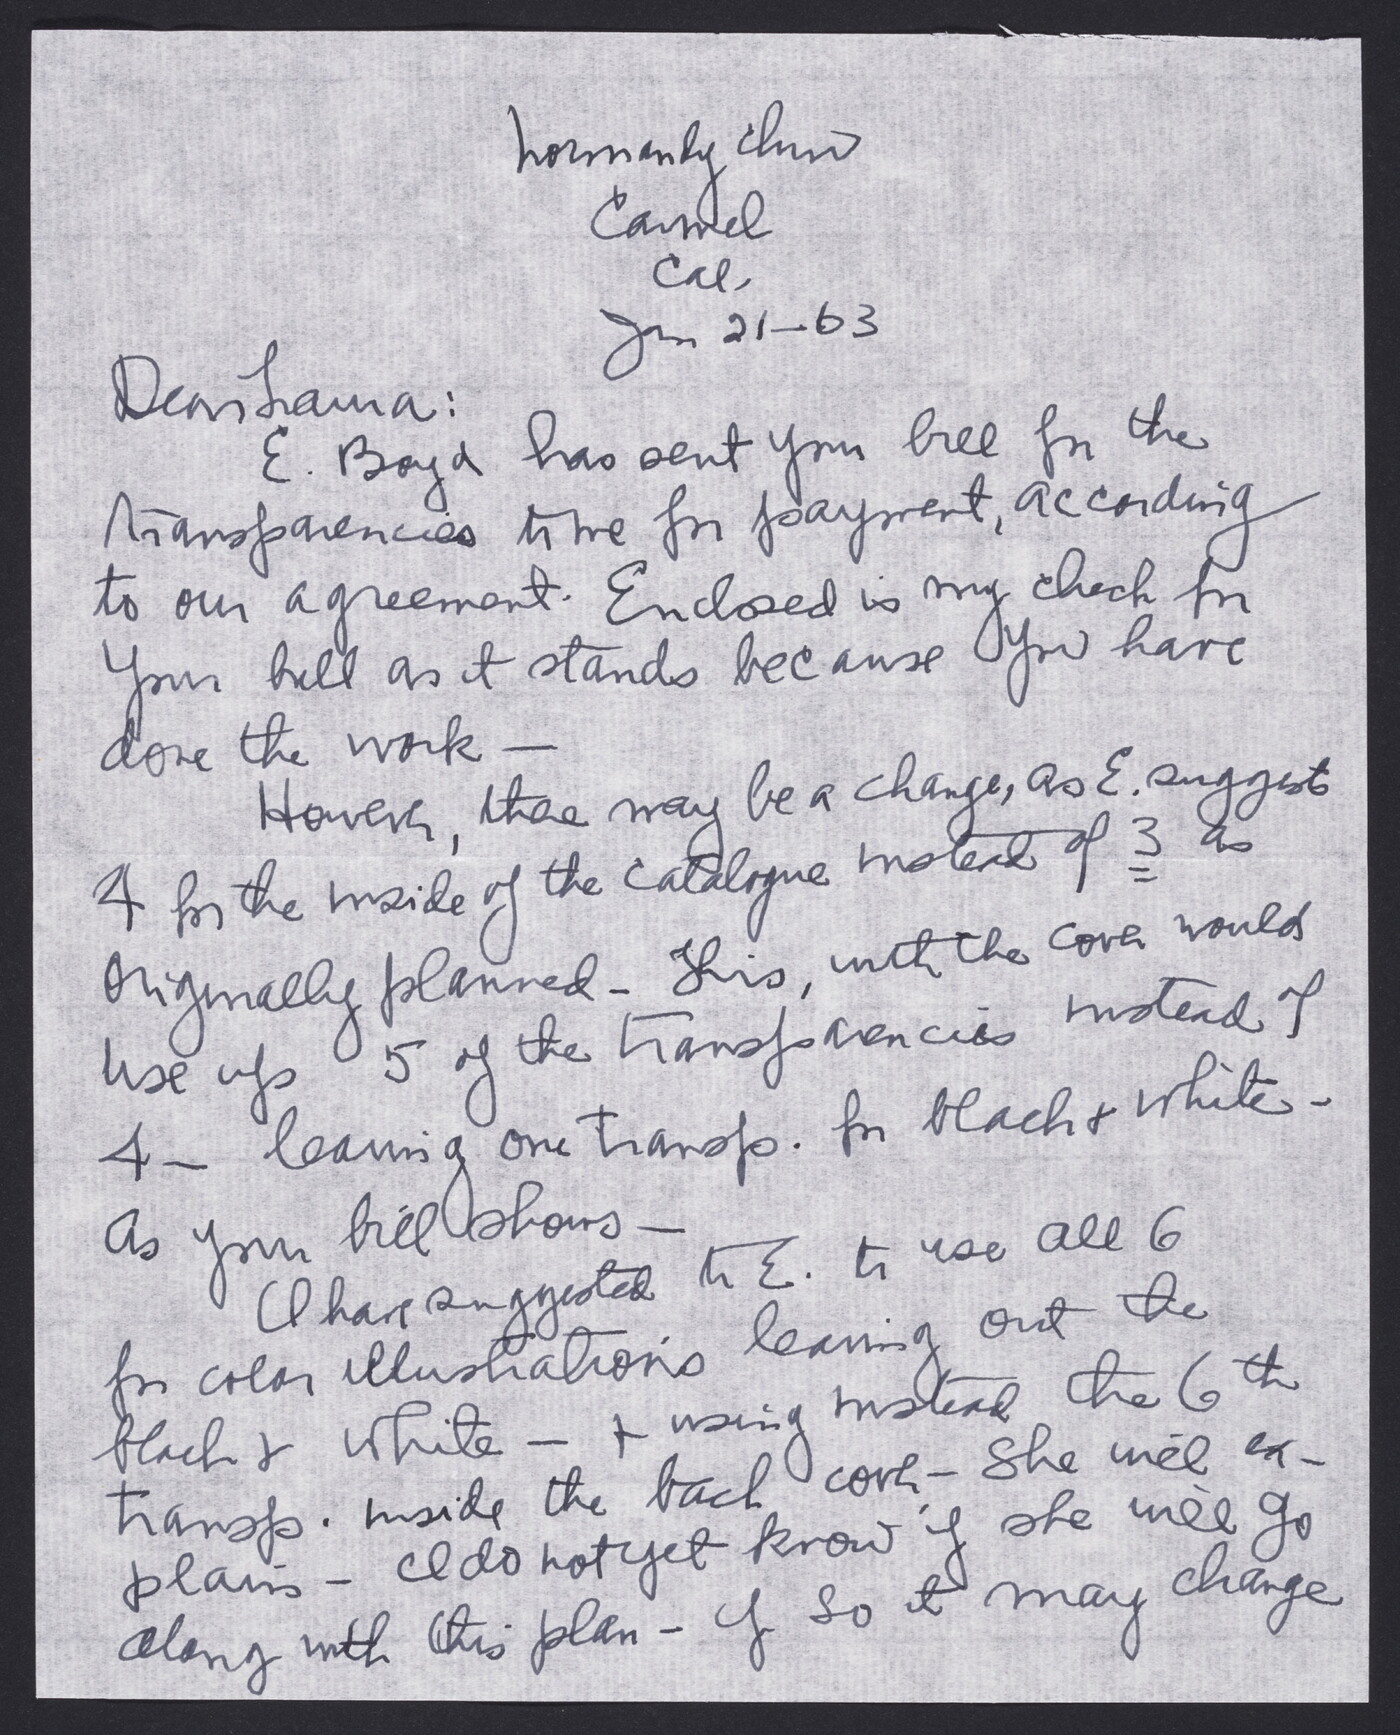 Normandy Inn
Carmel
Cal.
Jan 21–63
Dear Laura:
E. Boyd has sent your bill for the
transparencies to me for payment, according
to our agreement. Enclosed is my check for
your bill as it stands because you have
done the work —
However, there may be a change, as E. suggests
4 for the inside of the catalogue instead of 3 as
originally planned – This, with the cover would
use up 5 of the transparencies instead of
4 – leaving one transp. for black & white –
As your bill shows —
I have suggested to E. to use all 6
for color illustrations leaving out the
black & white – & using instead the 6th
transp. inside the back cover – She will ex-
plain – I do not yet know if she will go
along with this plan – If so it may change